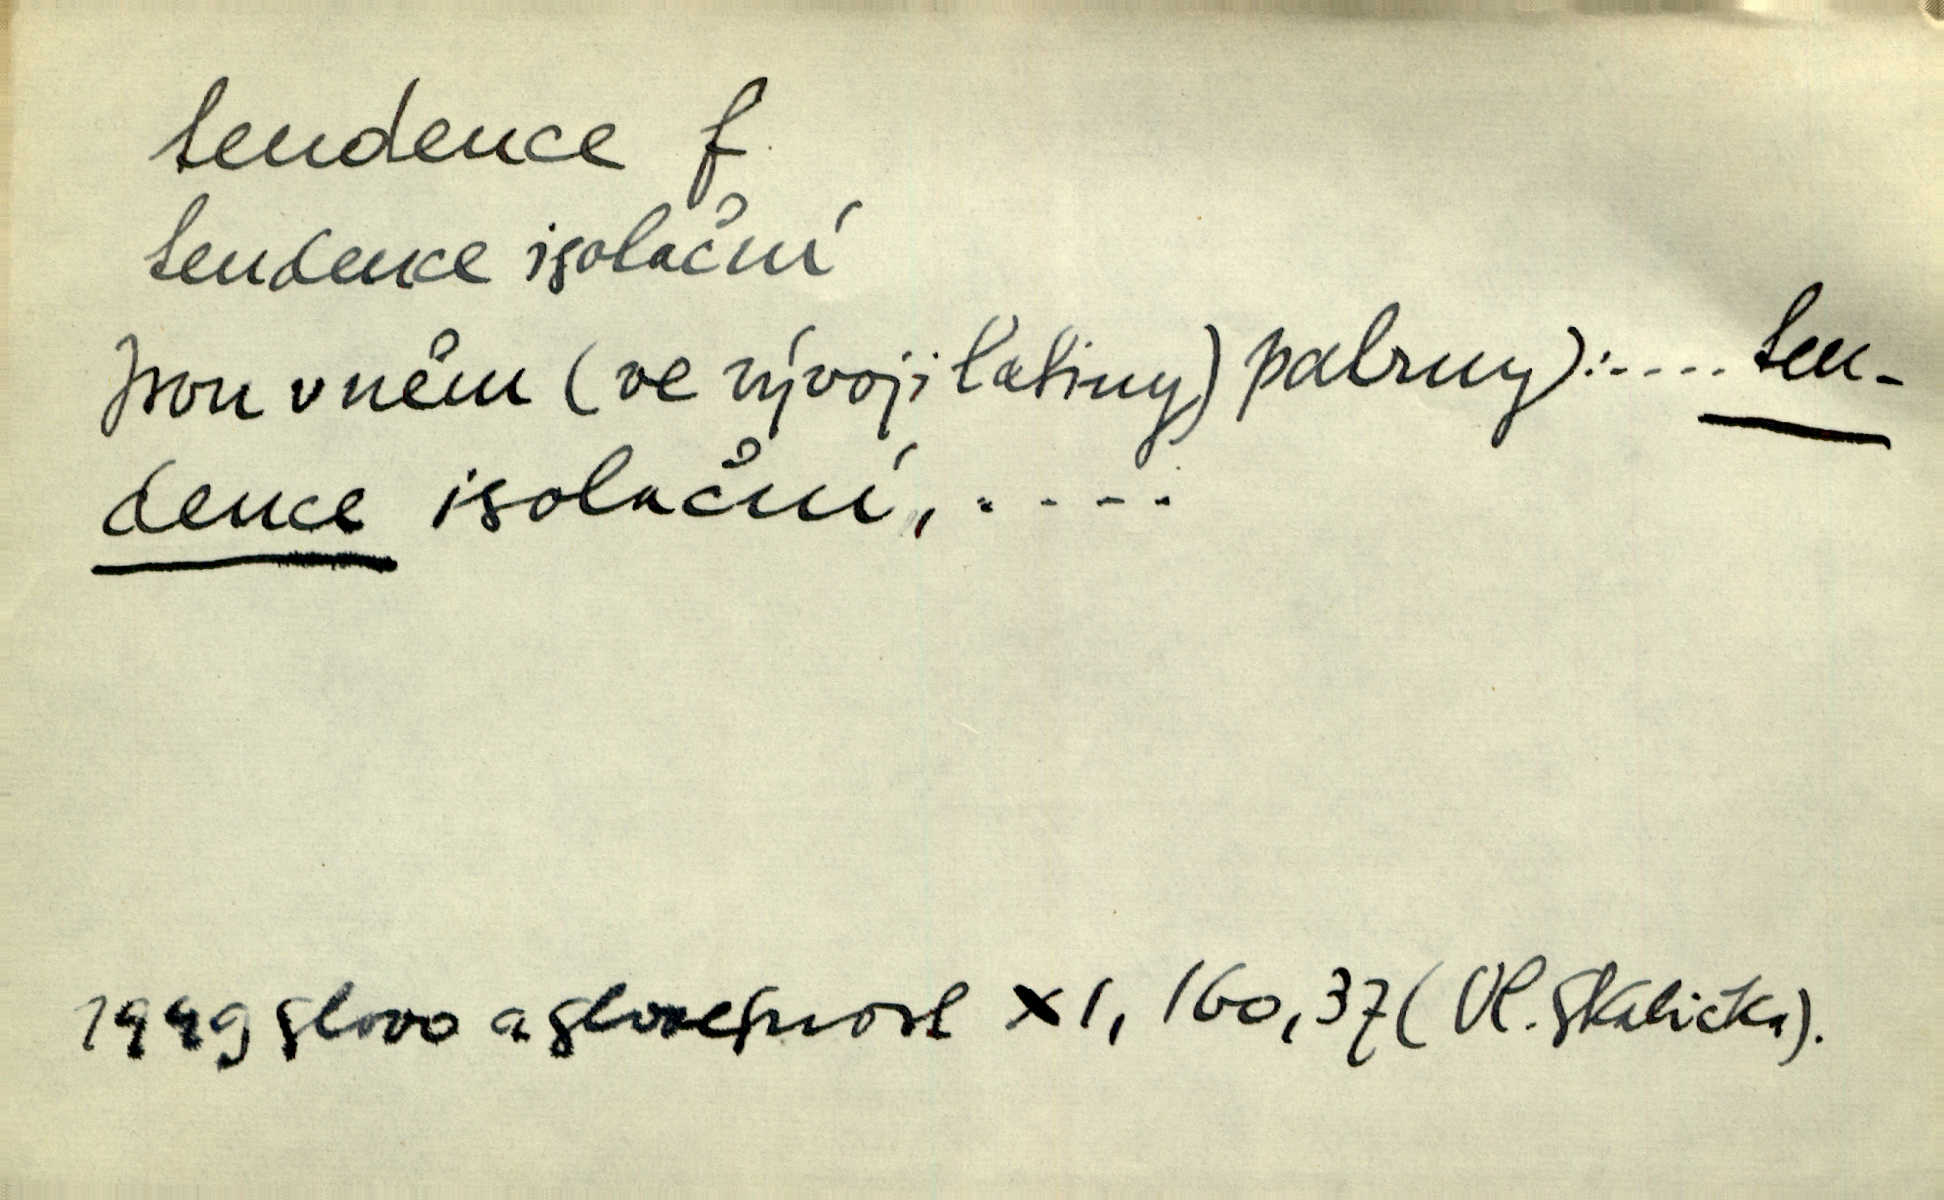 tendence f
tendence isolační
Jsou v něm (ve vývoji latiny) patrny): .... ten-
dence isolační, ....
1949 Slovo a slovesnost XI, 160, 37 (Vl. Skalička).